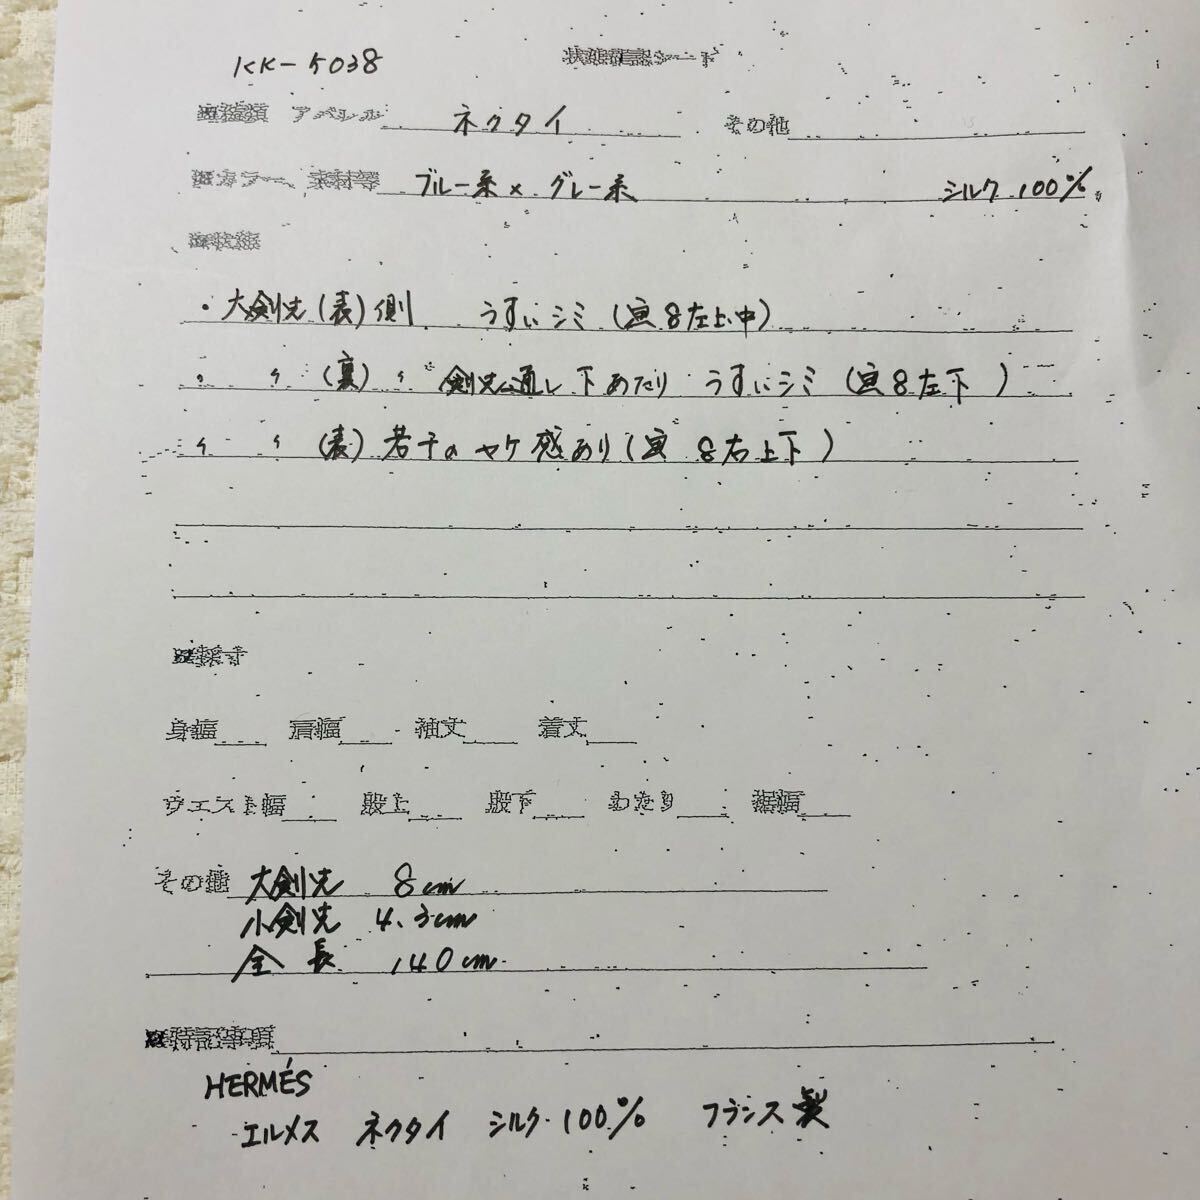 KK-5038
状態確認シート
アパレル ネクタイ その他
カラー、素材等 ブルー系×グレー系 シルク100%
・大剣先(表)側 うすいシミ(画8左上、中)
〃 (裏)〃 剣先通し下あたり うすいシミ(画8左下 )
〃 〃 (表)若干のヤケ感あり(画 8右上下 )
採寸
身幅 肩幅 袖丈 着丈
ウエスト幅 股上 股下 わたり 裾幅
その他 大剣先 8cm
小剣先 4.3cm
全長 140cm
特記事項
HERMÉS
エルメス ネクタイ シルク100% フランス製